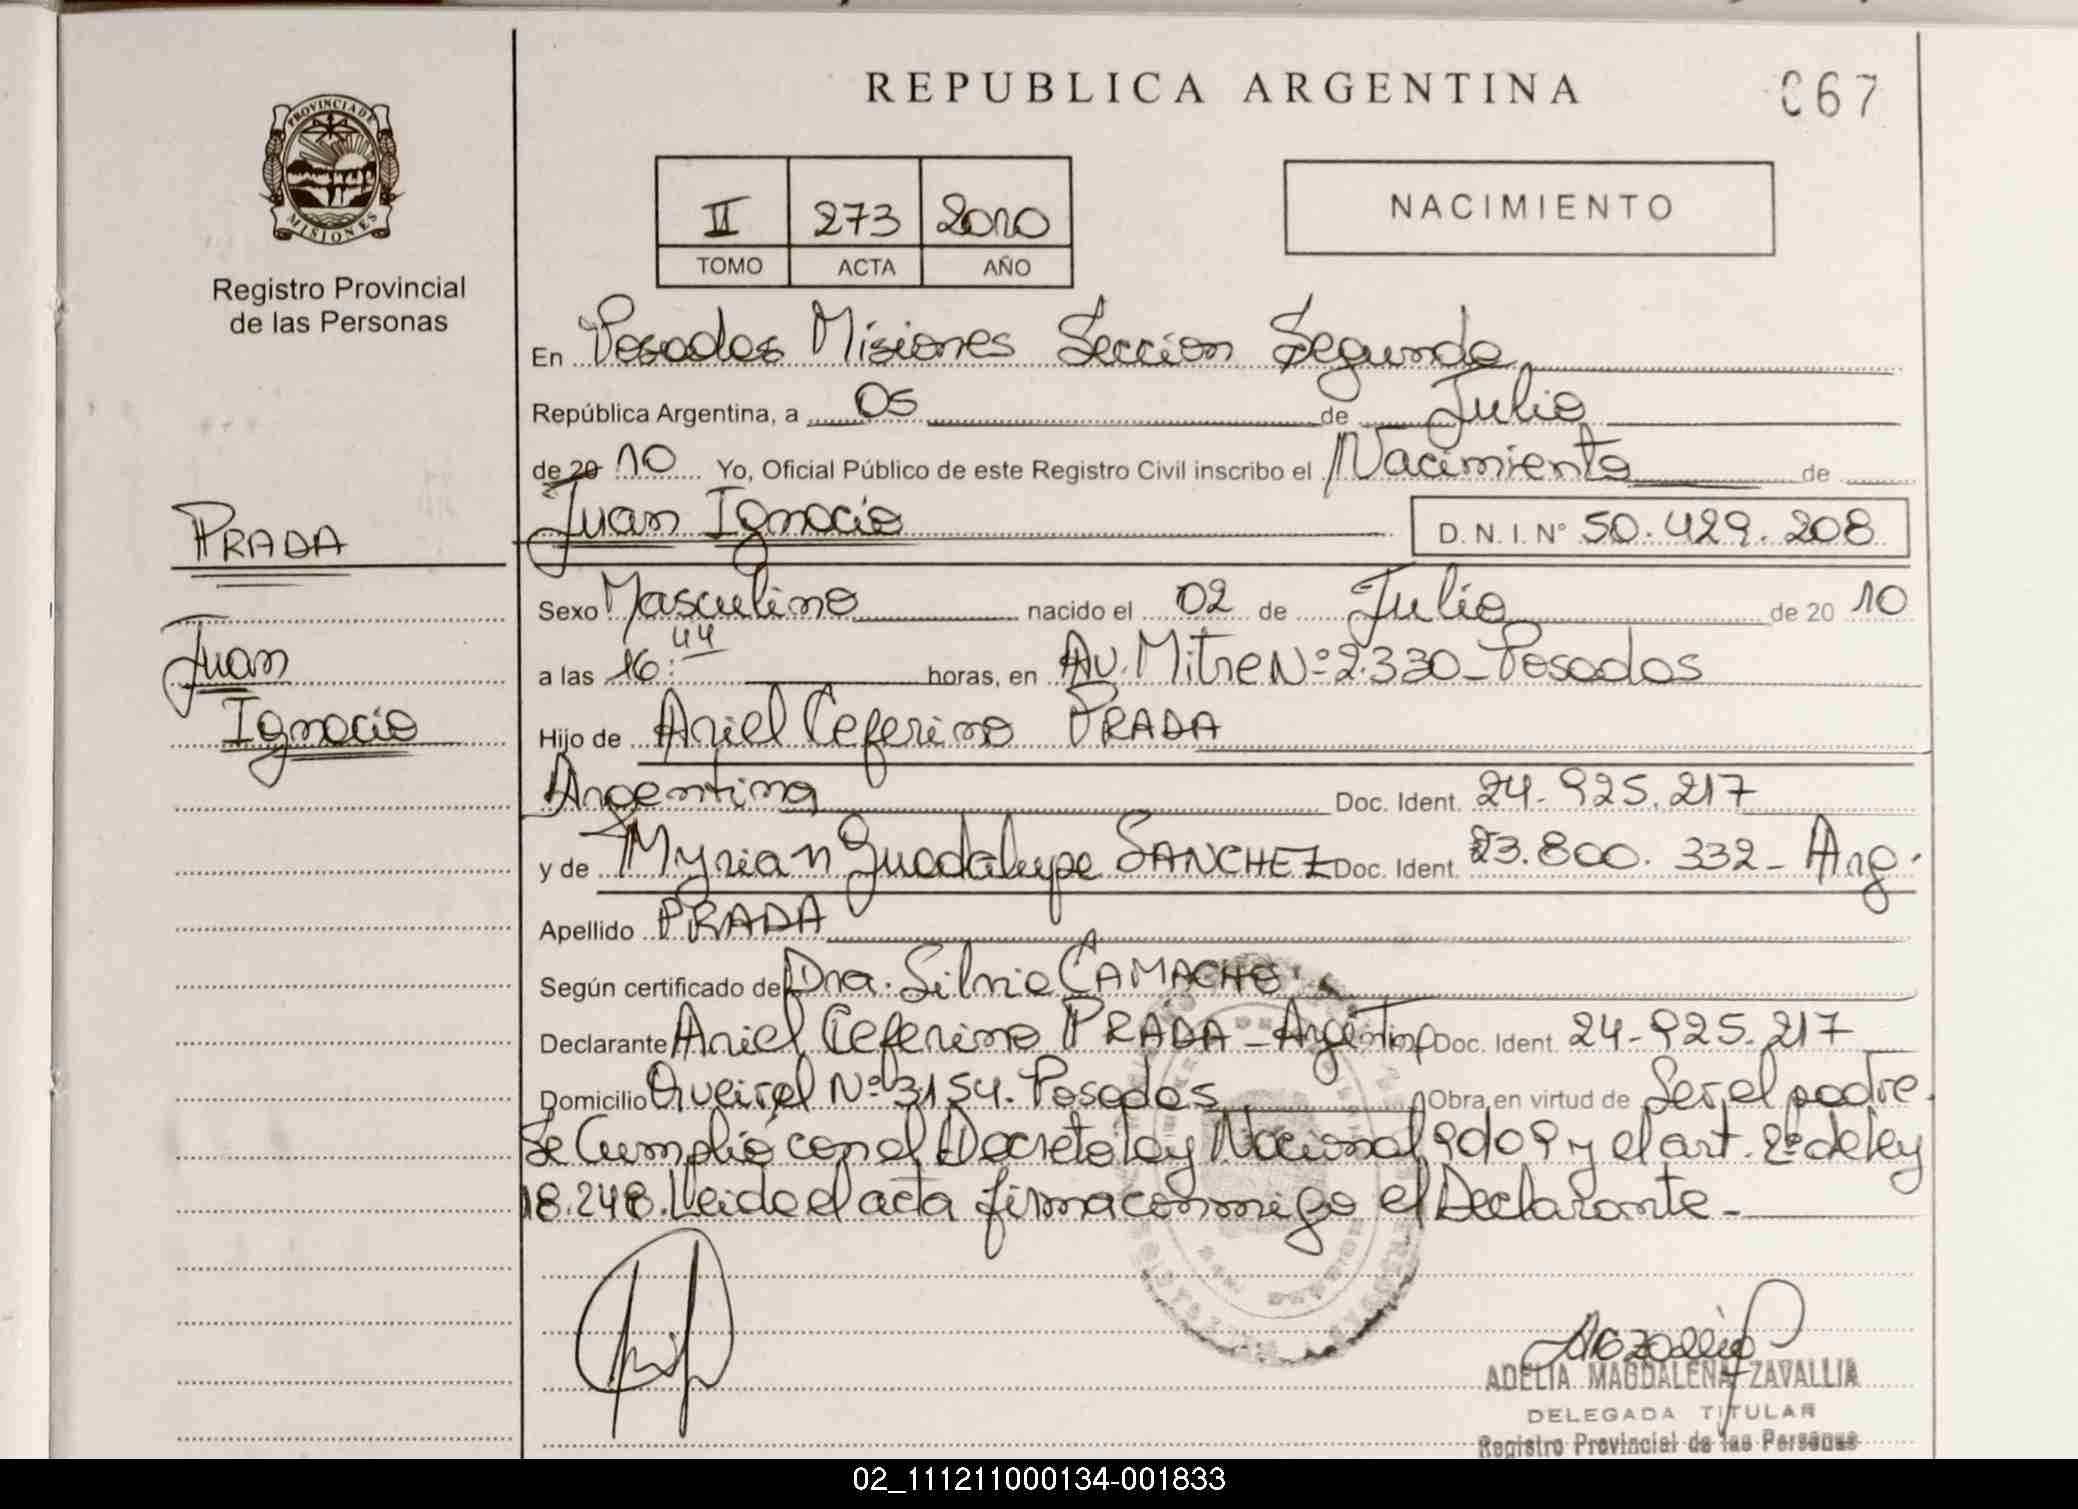 REPUBLICA ARGENTINA
067
PROVINCIA DE
MISIONES
Registro Provincial
de las Personas
II 273 2010
TOMO ACTA AÑO
NACIMIENTO
En Posadas Misiones Seccion Segunda
República Argentina, a 05 de Julio
de 2010 Yo, Oficial Público de este Registro Civil inscribo el Nacimiento de
Juan Ignacio D.N.I. Nº 50.429.208
PRADA
Juan
Ignacio
Sexo Masculino nacido el 02 de Julio de 2010
a las 16:44 horas, en Av. Mitre Nº 2.330 - Posadas
Hijo de Ariel Ceferino PRADA
Argentina Doc. Ident. 24-925.217
y de Myrian Guadalupe SANCHEZ Doc. Ident. 23.800.332- Arg.
Apellido PRADA
Según certificado de Dra. Silvia CAMACHO
Declarante Ariel Ceferino PRADA - Argentina Doc. Ident. 24-925.217
Domicilio Queirel Nº 3154. Posadas Obra en virtud de Ser el padre.
Se Cumplió con el Decreto ley Nacional 9009 y el art. 2º de ley
18.248. Leida el acta firma conmigo el Declarante.-
ADELIA MAGDALENA ZAVALLIA
DELEGADA TITULAR
Registro Provincial de las Personas
02_111211000134-001833